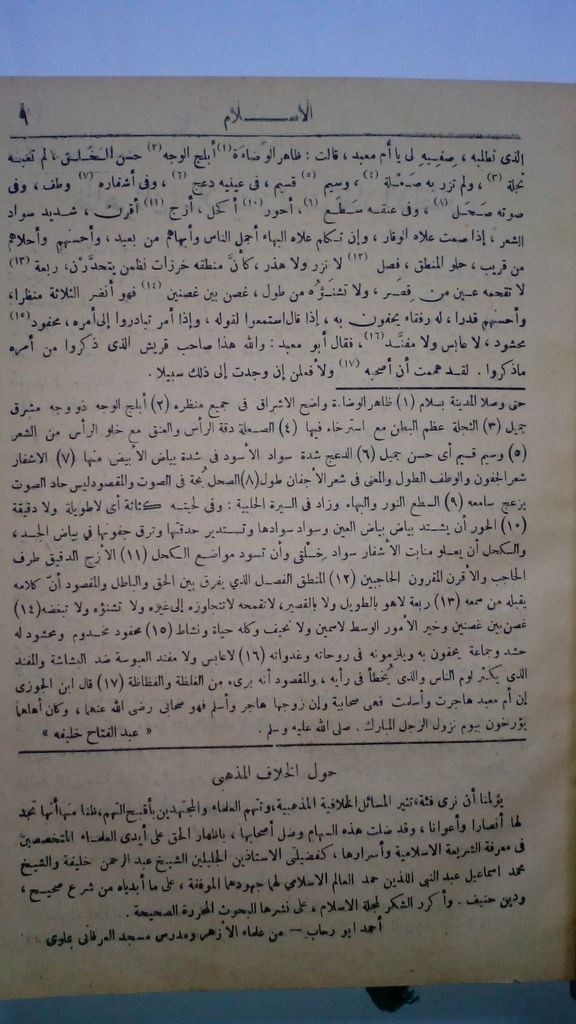 الاســـلام
٩
الذى تطلبه ، صفيه لى يا أم معبد ، قالت : ظاهر الوضاءة (١) أبلج الوجه (٢) حسن الخلق ، لم تعبه
ثجلة (٣) ، ولم تزر به صعلة (٤) ، وسيم (٥) قسيم ، فى عينيه دعج (٦) ، وفى أشفاره (٧) وطف ، وفى
صوته صحل (٨) ، وفى عنقه سطع (٩) ، أحور (١٠) أكحل ، أزج (١١) أقرن ، شديد سواد
الشعر ، إذا صمت علاه الوقار ، وإن تكلم علاه البهاء أجمل الناس وأبهاهم من بعيد ، وأحسنهم وأحلاهم
من قريب ، حلو المنطق ، فصل (١٢) لا نزر ولا هذر ، كأن منطقه خرزات نظمن يتحدرن ، ربعة (١٣)
لا تقحمه عين من قصر ، ولا تشنؤه من طول ، غصن بين غصنين (١٤) فهو أنضر الثلاثة منظرا ،
وأحسنهم قدرا ، له رفقاء يحفون به ، إذا قال استمعوا لقوله ، وإذا أمر تبادروا إلى أمره ، محفود (١٥)
محشود ، لا عابس ولا مفند (١٦) ، فقال أبو معبد : والله هذا صاحب قريش الذى ذكروا من أمره
ماذكروا . لقد هممت أن أصحبه (١٧) ولأفعلن إن وجدت إلى ذلك سبيلا .
حتى وصلا المدينة بسلام (١) ظاهر الوضاءة واضح الاشراق فى جميع منظره (٢) أبلج الوجه ذو وجه مشرق
جميل (٣) الثجلة عظم البطن مع استرخاء فيها (٤) الصعلة دقة الرأس والعنق مع خلو الرأس من الشعر
(٥) وسيم قسيم أى حسن جميل (٦) الدعج شدة سواد الأسود فى شدة بياض الأبيض منها (٧) الاشفار
شعر الجفون والوطف الطول والمعنى فى شعر الأجفان طول (٨) الصحل بحة فى الصوت والمقصود ليس حاد الصوت
يزعج سامعه (٩) السطع النور والبهاء وزاد فى السيرة الحلبية : وفى لحيته كثاثة أى لا طويلة ولا دقيقة
(١٠) الحور أن يشتد بياض بياض العين وسواد سوادها وتستدير حدقتها وترق جفونها فى بياض الجسد ،
والكحل أن يعلو منابت الأشفار سواد خلقى وأن تسود مواضع الكحل (١١) الأزج الدقيق طرف
الحاجب والأقرن المقرون الحاجبين (١٢) المنطق الفصل الذي يفرق بين الحق والباطل والمقصود أن كلامه
يقبله من سمعه (١٣) ربعة لاهو بالطويل ولا بالقصير ، لاتقحمه لاتتجاوزه إلى غيره ولا تشنؤه ولا تبغضه (١٤)
غصن بين غصنين وخير الأمور الوسط لاسمين ولا نحيف وكله حياة ونشاط (١٥) محفود مخدوم ومحشود له
حشد وجماعة يحفون به ويلزمونه فى روحاته وغدواته (١٦) لاعابس ولا مفند العبوسة ضد البشاشة والمفند
الذى يكثر لوم الناس والذى يُخطأ فى رأيه ، والمقصود أنه برىء من الغلظة والفظاظة (١٧) قال ابن الجوزى
إن أم معبد هاجرت وأسلمت فهى صحابية وإن زوجها هاجر وأسلم فهو صحابى رضى الله عنهما ، وكان أهلها
يؤرخون بيوم نزول الرجل المبارك . صلى الله عليه وسلم . « عبد الفتاح خليفه »
حول الخلاف المذهبى
يؤلمنا أن نرى فئة ، تثير المسائل الخلافية المذهبية ، وتتهم العلماء والمجتهدين بأقبح التهم ، ظنا منها أنها تجد
لها أنصارا وأعوانا ، وقد ضلت هذه السهام وضل أصحابها ، باظهار الحق على أيدى العلماء المتخصصين
فى معرفة الشريعة الاسلامية وأسرارها ، كفضيلتى الاستاذين الجليلين الشيخ عبد الرحمن خليفة والشيخ
محمد اسماعيل عبد النبى اللذين حمد العالم الاسلامى لها جهودهما الموفقة ، على ما أبدياه من شرع صحيح ،
ودين حنيف . وأكرر الشكر لمجلة الاسلام ، على نشرها البحوث المحررة الصحيحة .
أحمد ابو رحاب — من علماء الأزهر ومدرس مسجد العرفانى بملوى